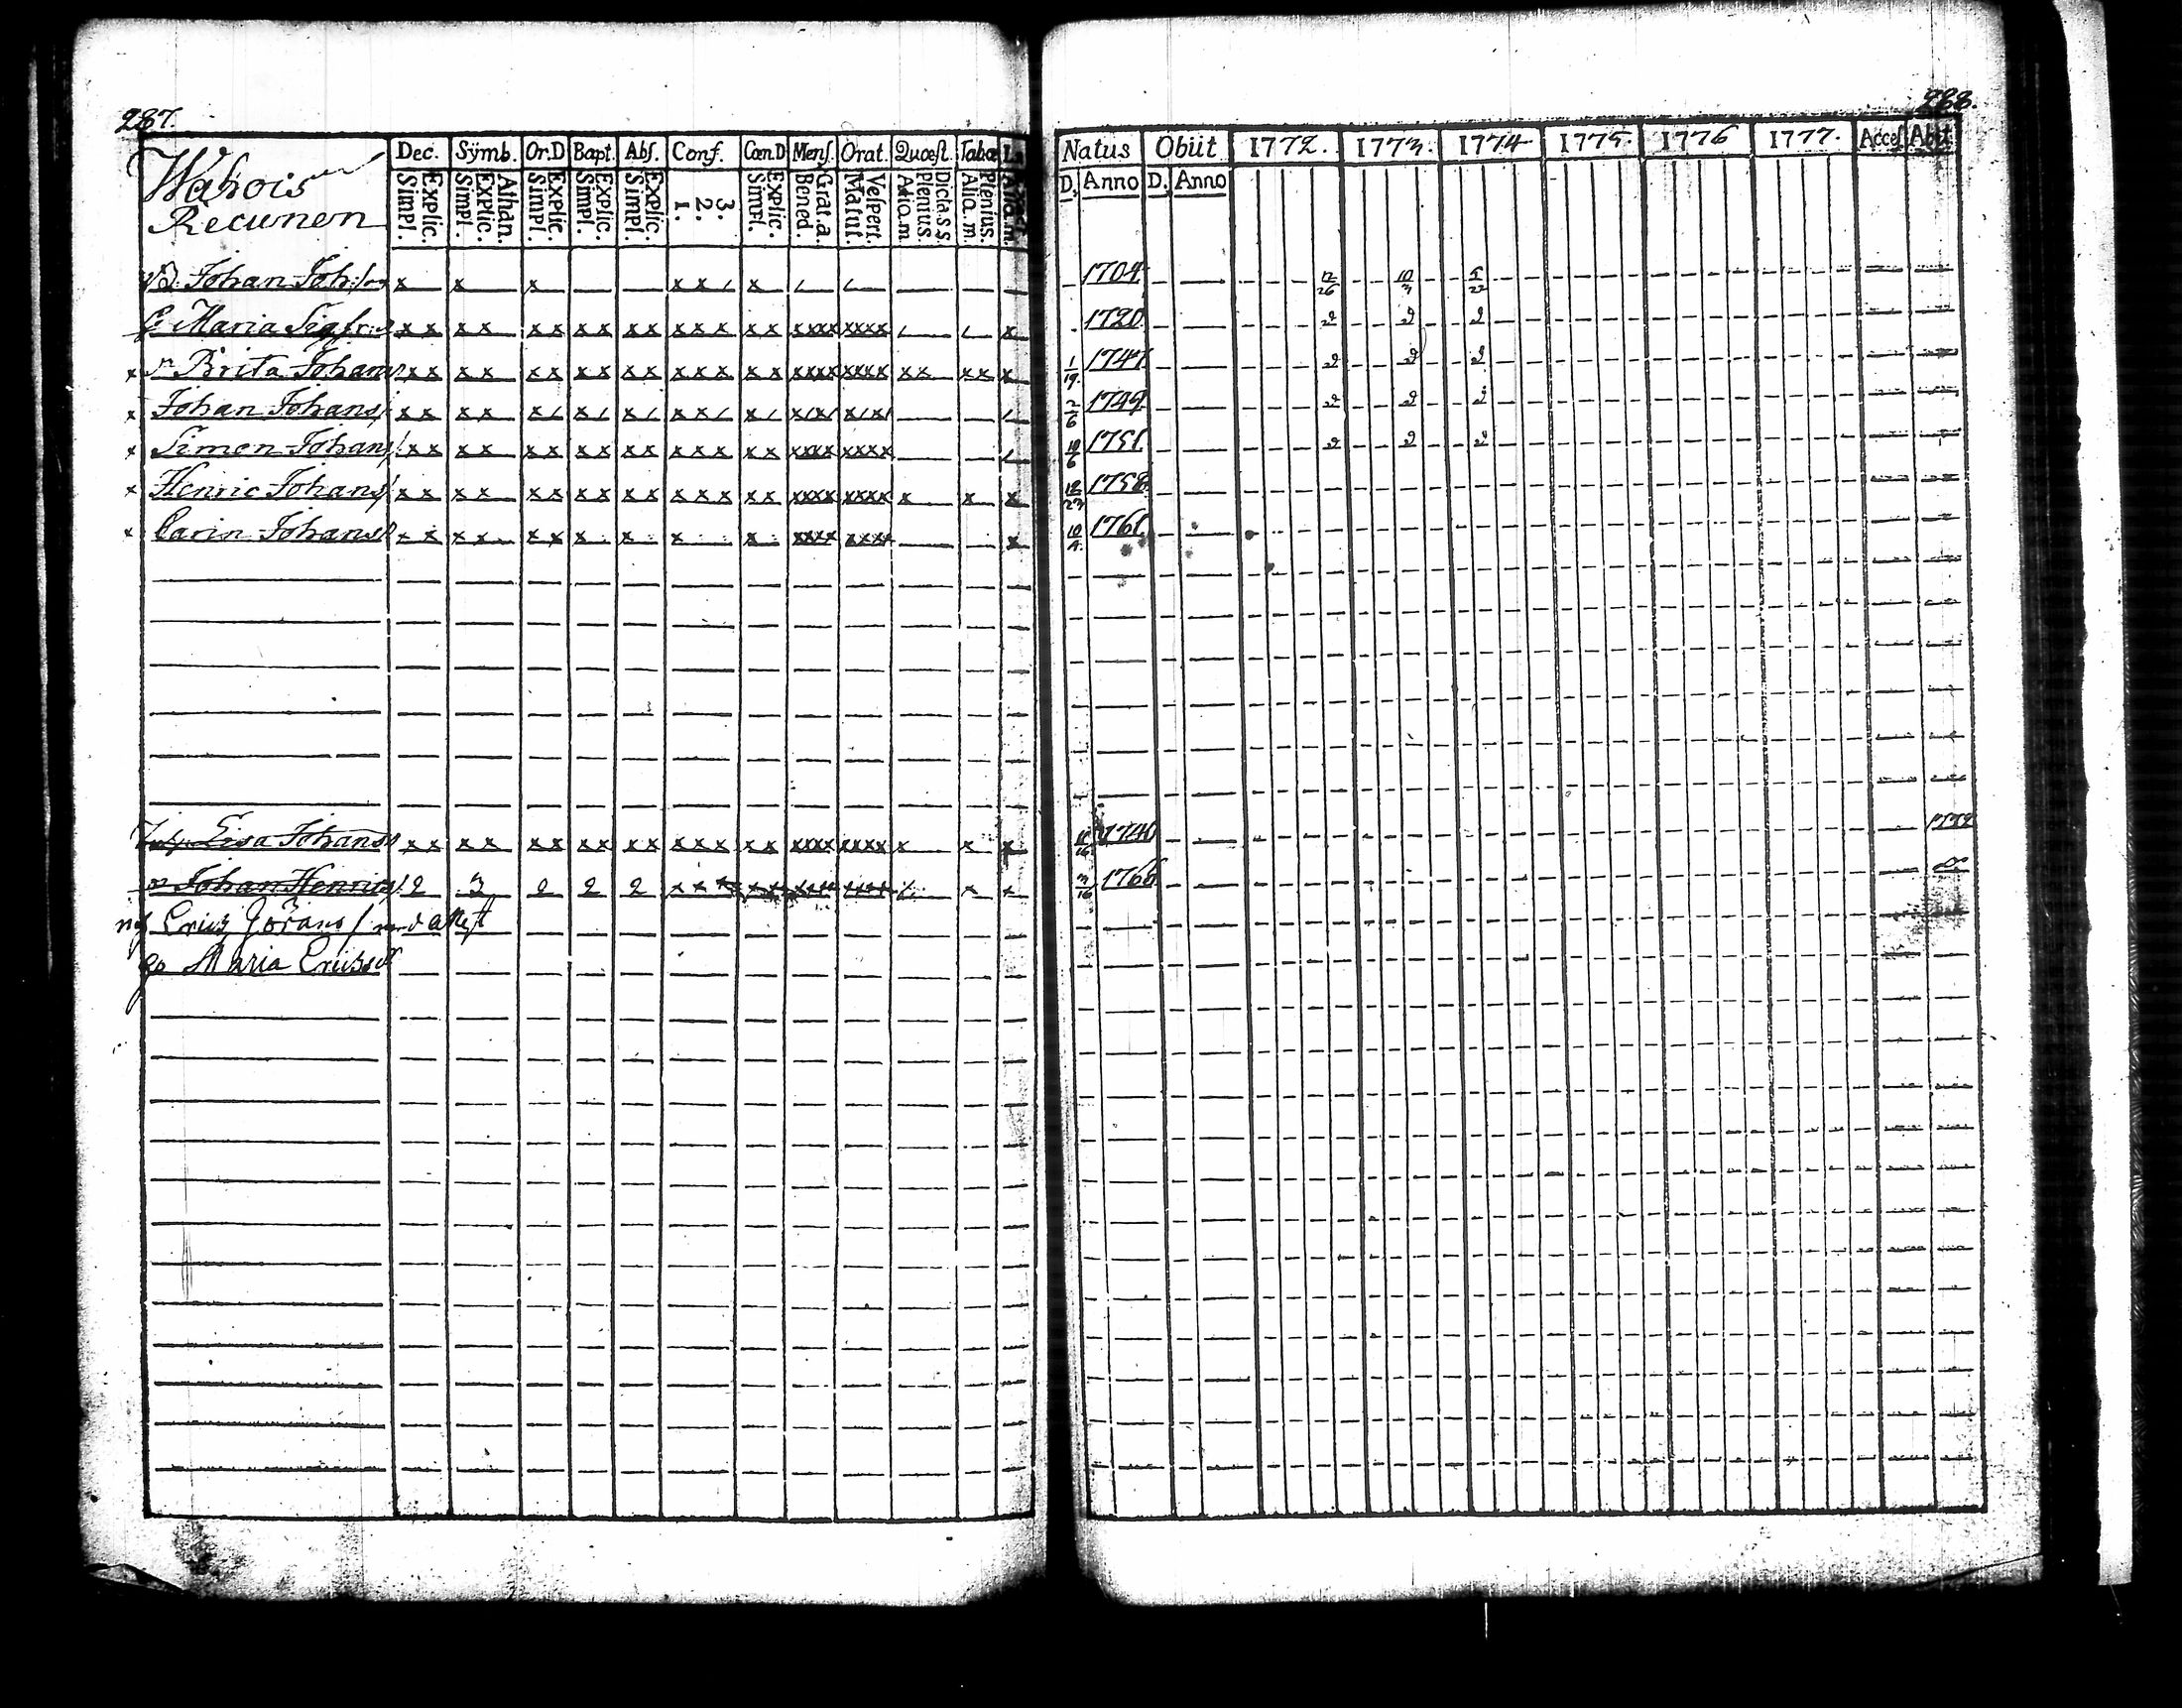 287.
288.
Dec. Sÿmb. Or.D Bapt. Abſ. Conf. Cœn.D Menſ. Orat. Quœſt. Tabœ
Simpl. Explic. Simpl. Explic. Athan. Simpl. Explic. Simpl. Explic. Simpl. Explic. 1. 2. 3. Simpl. Explic. Bened. Grat.a. Matut. Veſpert. Alia.m. Plenius. Dicta.s.s. Alia.m. Plenius.
Natus Obiit 1772. 1773. 1774 1775. 1776 1777. Acceſ Abit
D. Anno D. Anno
Wahois
Recunen
Johan Joh:ſon x x x x x / x / / 1704 12/26 10/3 5/22
Maria Sigfr: x x x x x x x x x x x x x x x x xxxx xxxx / / x 1720
Brita Johans x x x x x x x x x x x x x x x xxxx xxxx x x x x x 1/19. 1747
x Johan Johans x x x x x / x / x / x x / x / x/x/ x/x/ / 2/6 1749
x Simon Johans x x x x x x x x x x x x x x x xxxx xxxx / 10/6 1751
x Henric Johans x x x x x x x x x x x x x x x xxxx xxxx x x x 12/23 1758
x Carin Johans x x x x x x x x x x xxxx xxxx x 10/4. 1761
Lisa Johans x x x x x x x x x x x x x x x xxxx xxxx x x x 1740
Johan Henrics 2 3 2 2 2 x x x x x xxxx xxxx / x x 3/16 1766
Erich Jörans
Maria Erichsd